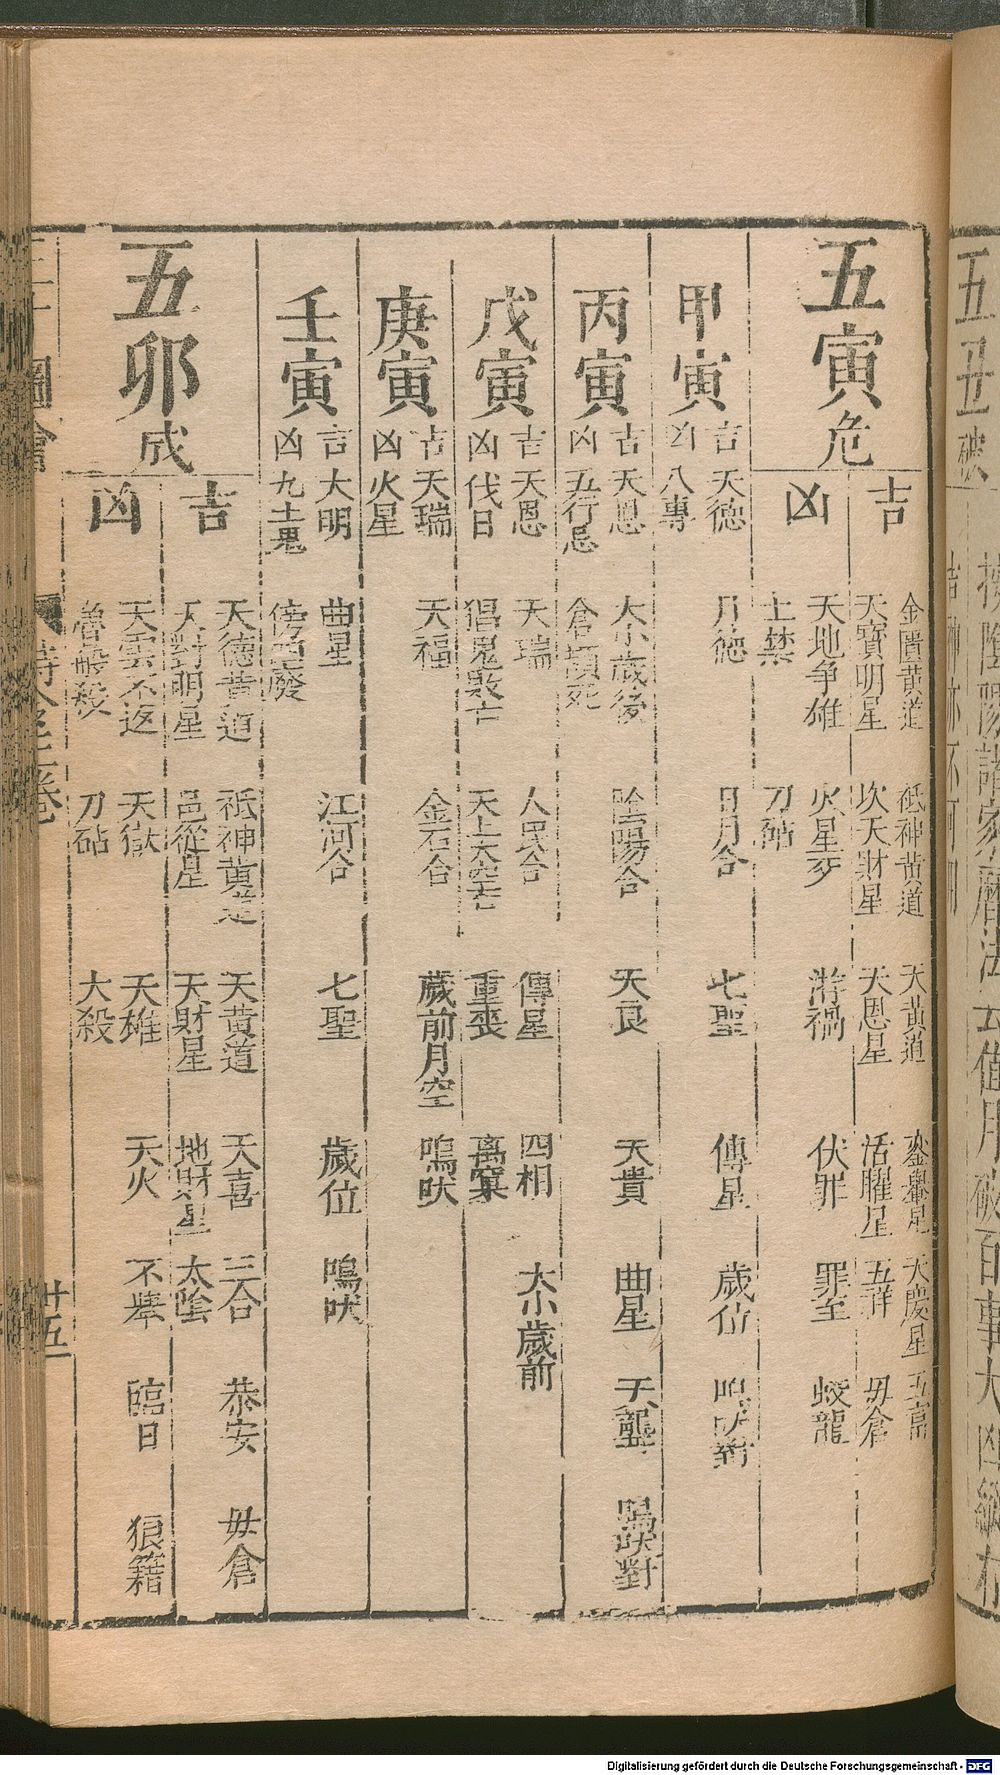 五丑破
五寅危
吉
金匱黃道 祗神黃道 天黃道 鑾輿星 天慶星 五富
天寶明星 次天財星 天恩星 活曜星 五祥 毋倉
凶
天地争雄 火星歹 游禍 伏罪 罪至 蛟龍
土禁 刀砧
甲寅
吉 天德 月德 日月合 七聖 傳星 歲位 鳴吠對
凶 八專
丙寅
吉 天恩 大小歲後 陰陽合 天良 天貴 曲星 天聾 鳴吠對
凶 五行忌 倉頡死
戊寅
吉 天恩 天瑞 人民合 傳星 四相 大小歲前
凶 伐日 猖鬼敗亡 天上大空亡 重喪 离窠
庚寅
吉 天瑞 天福 金石合 歲前月空 鳴吠
凶 火星
壬寅
吉 大明 曲星 江河合 七聖 歲位 鳴吠
凶 九土鬼 傍四廢
五卯成
吉
天德黃道 祗神黃道 天黃道 天喜 三合 恭安 毋倉
天對明星 邑從星 天財星 地財星 太陰
凶
天雲不返 天獄 天雄 天火 不舉 臨日 狼籍
刀砧 大殺
三才圖會
時令三卷
廿五
Digitalisierung gefördert durch die Deutsche Forschungsgemeinschaft - DFG